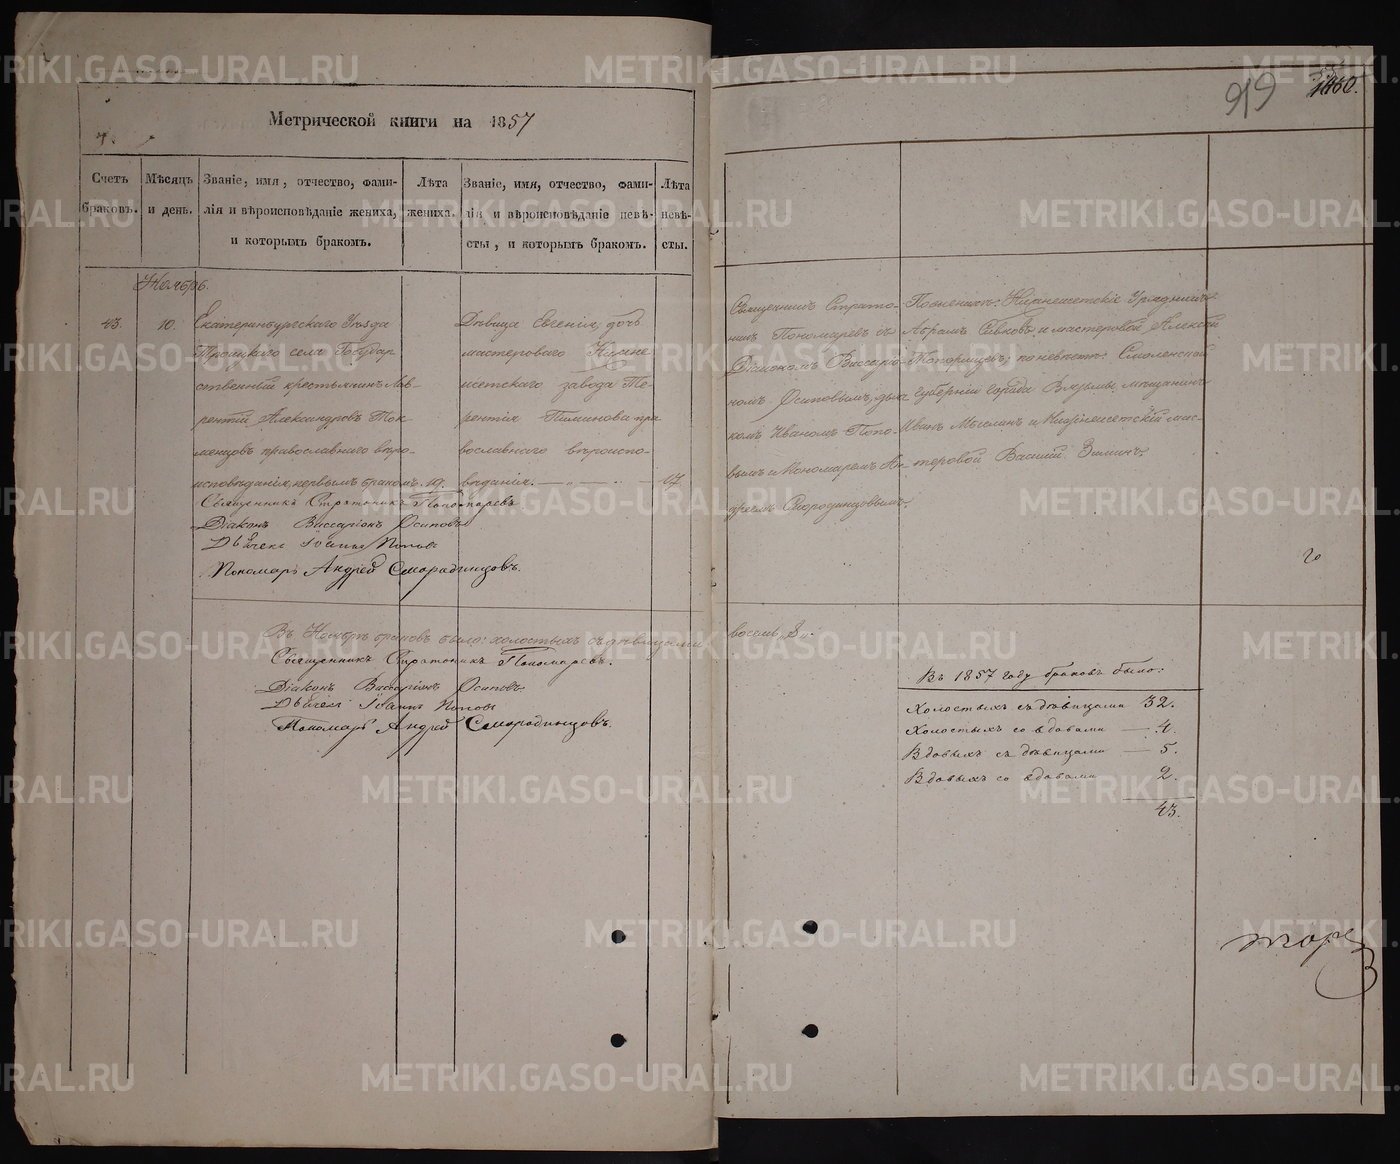 Метрической книги на 1857
Счетъ браковъ.
Мѣсяцъ и день.
Званіе, имя, отчество, фами-
лія и вѣроисповѣданіе жениха,
и которымъ бракомъ.
Лѣта жениха.
Званіе, имя, отчество, фами-
лія и вѣроисповѣданіе невѣ-
сты, и которымъ бракомъ.
Лѣта невѣ-
сты.
Ноябрь.
43.
10.
Екатеринбургскаго Уѣзда
Троицкаго села Государ
ственный крестьянинъ Лав-
рентій Александровъ Ток-
менцовъ православнаго вѣро-
исповѣданія, первымъ бракомъ. 19.
Дѣвица Евгенія, дочь
мастероваго Нижне
исетскаго завода Те-
рентія Тиминова пра
вославнаго вѣроиспо-
вѣданія. 17
Священникъ Стратоникъ Пономаревъ
Діаконъ Виссаріонъ Осиповъ
Дьячекъ Іоаннъ Поповъ
Пономарь Андрей Смородинцовъ.
Въ Ноябрѣ браковъ было: холостыхъ съ дѣвицами
Священникъ Стратоникъ Пономаревъ.
Діаконъ Виссаріонъ Осиповъ
Дьячекъ Іоаннъ Поповъ
Пономарь Андрей Смородинцовъ.
919
1060.
Священникъ Страто-
никъ Пономаревъ съ
Діакономъ Виссаріо-
номъ Осиповымъ, дьяч
комъ Иваномъ Попо-
вымъ и Пономаремъ Ан-
дреемъ Смородинцовымъ.
По женихѣ: Нижнеисетскіе Урядникъ
Абрамъ Сивковъ и мастеровой Алексѣй
Топорищевъ; по невѣстѣ: Смоленской
губерніи города Вязьмы мещанинъ
Иванъ Мыслинъ и Нижнеисетскій мас-
теровой Василій Зиминъ.
восемь „8„.
Въ 1857 году браковъ было:
Холостыхъ съ дѣвицами 32.
Холостыхъ со вдовами — 4.
Вдовыхъ съ дѣвицами — 5.
Вдовыхъ со вдовами 2.
43.
METRIKI.GASO-URAL.RU